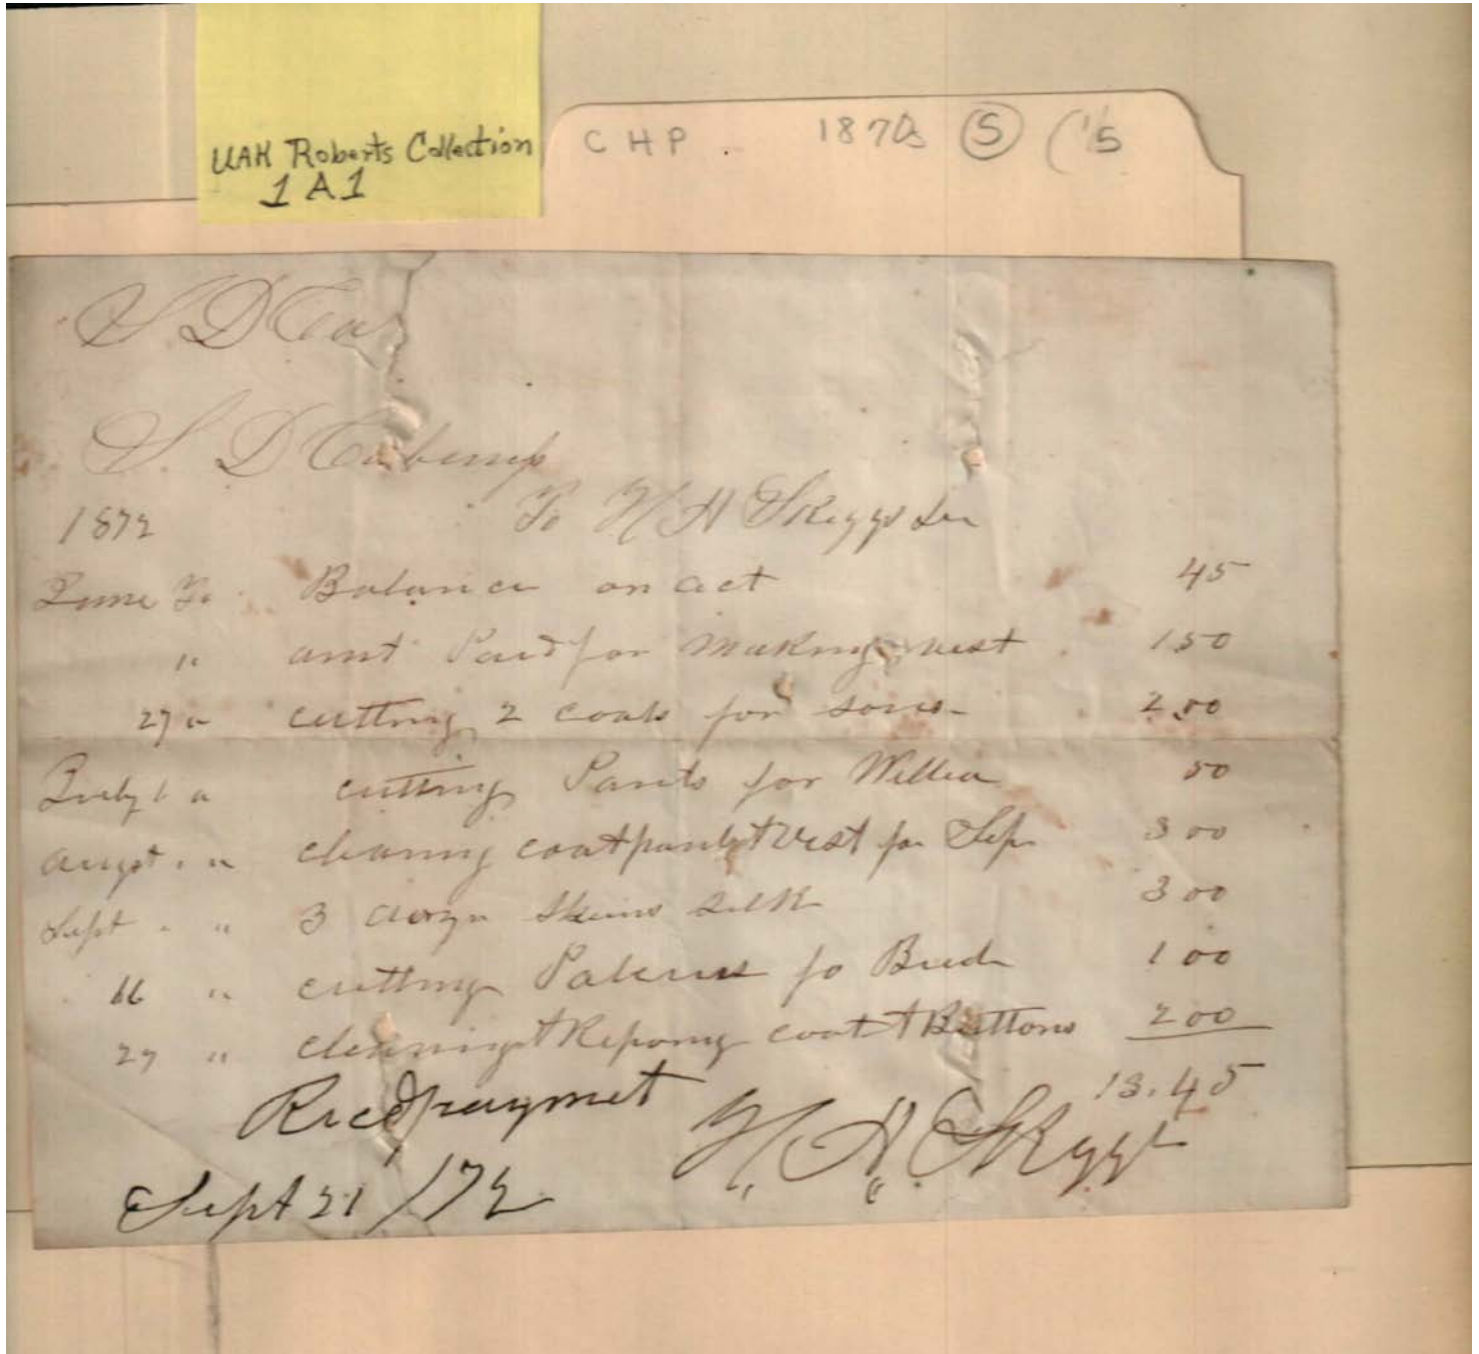 UAH Roberts Collection
1 A 1
CHP. 1870s (S) (1/5
S D Ca
S. D Cabaniss
1872 To H H Skeggs Dr
June To Balance on act 45
" amt Paid for Making vest 1.50
27 " cutting 2 coats for sons 2.00
July 1 " cutting Pants for Willia 50
Augst . " cleaning coat pants & Vest for Sep 3 00
Sept . " 3 dozn Skeins silk 3 00
16 " cutting Paterns fo Bud 1 00
27 " cleaning & Reparng coat & Buttons 2 00
13.45
Recd paymet H. H. Skeggs
Sept 21 / 72